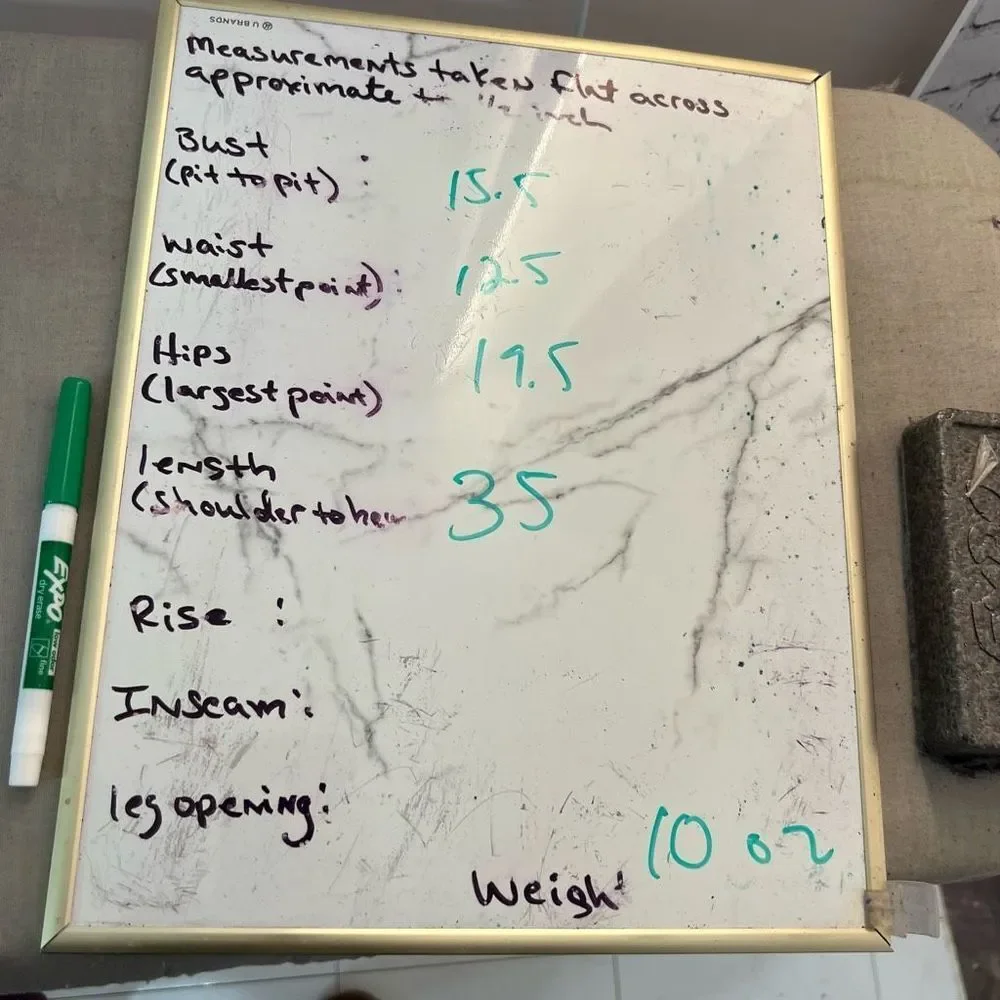 U BRANDS
Measurements taken flat across
approximate + 1/2 inch
Bust
(pit to pit) :
15.5
waist
(smallest point) :
12.5
Hips
(largest point)
19.5
length
(shoulder to hem
35
Rise :
Inseam :
leg opening :
10 oz
Weigh
EXPO
dry erase
fine